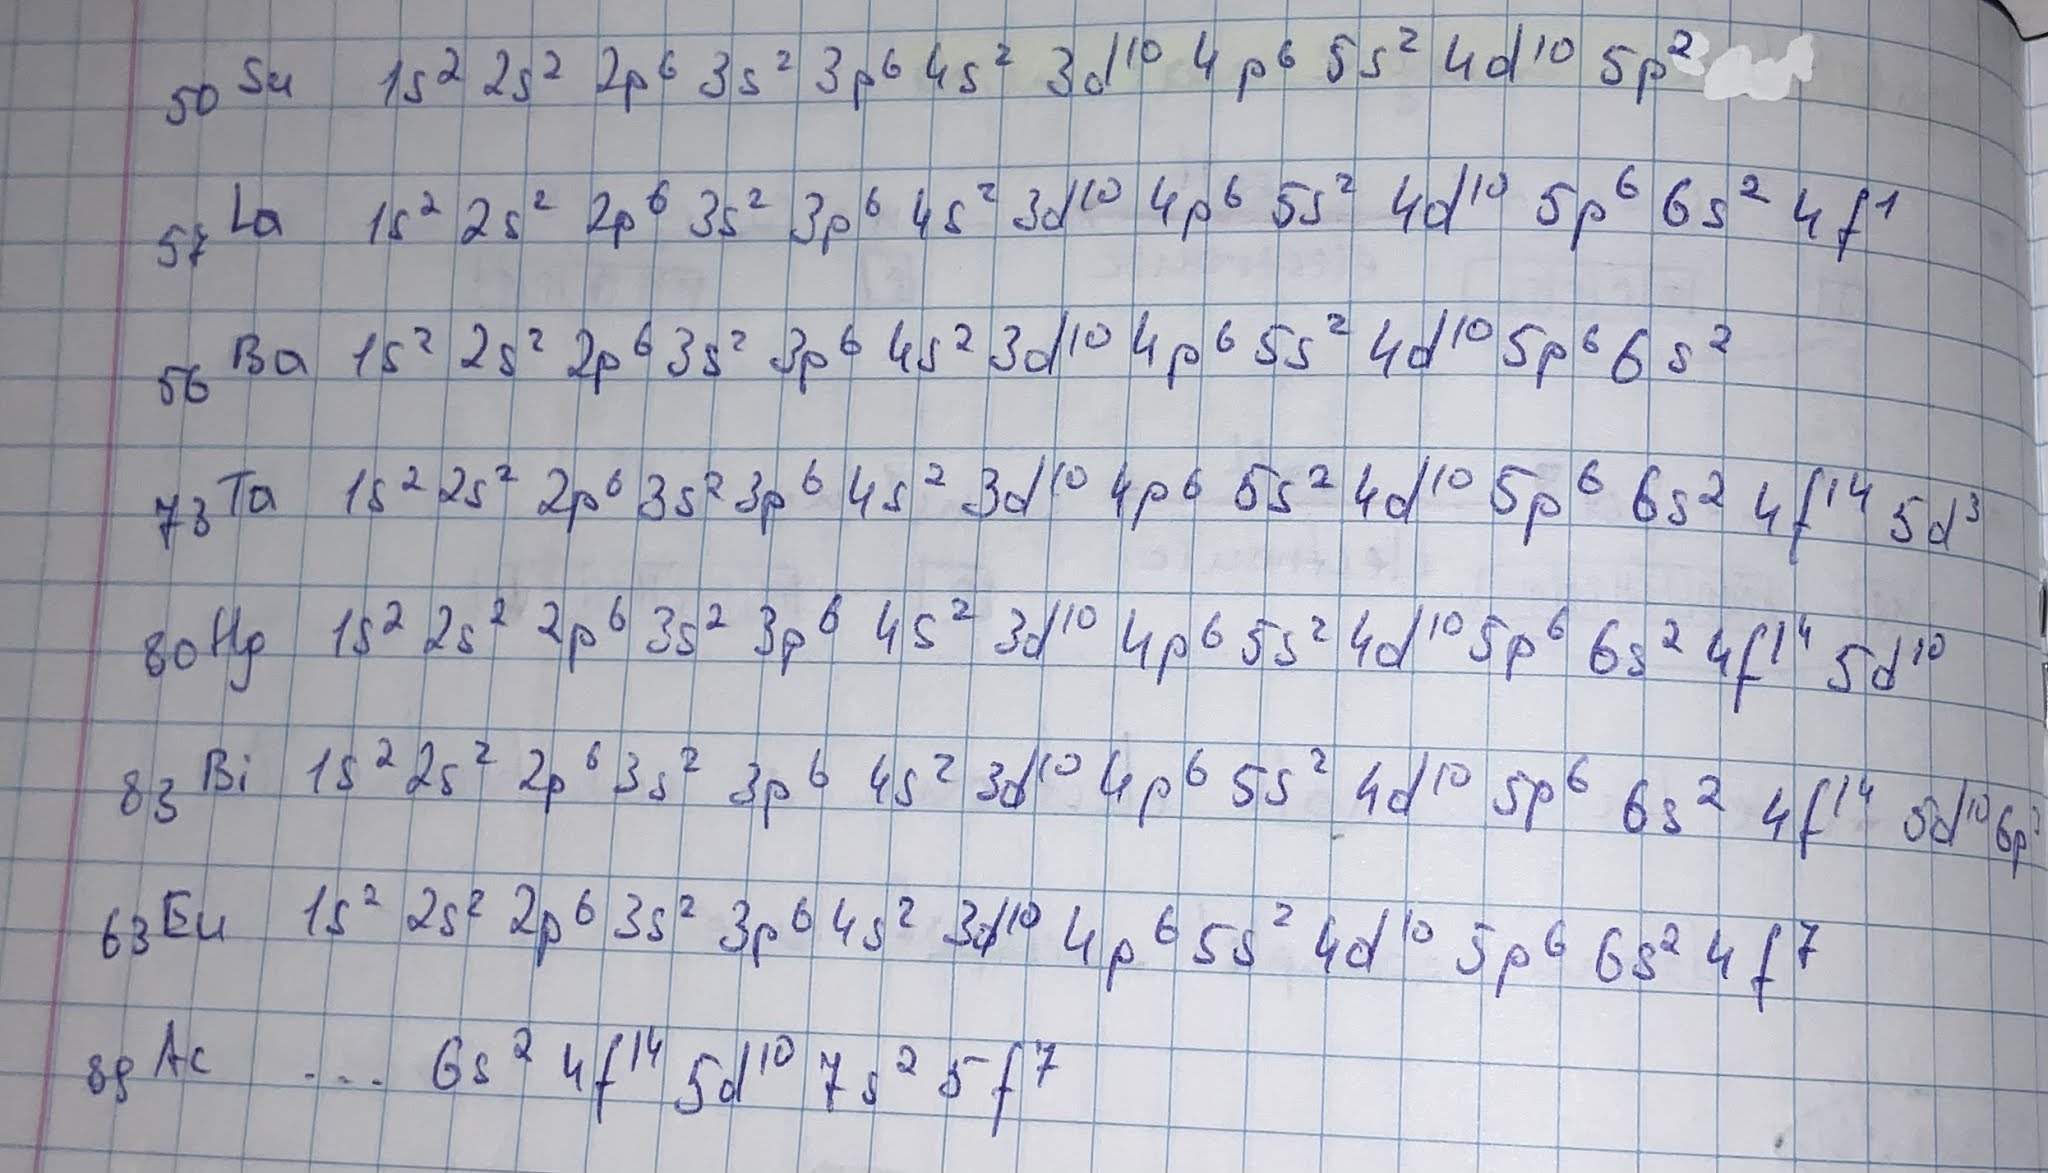 50 Sn 1s² 2s² 2p⁶ 3s² 3p⁶ 4s² 3d¹⁰ 4p⁶ 5s² 4d¹⁰ 5p²
57 La 1s² 2s² 2p⁶ 3s² 3p⁶ 4s² 3d¹⁰ 4p⁶ 5s² 4d¹⁰ 5p⁶ 6s² 4f¹
56 Ba 1s² 2s² 2p⁶ 3s² 3p⁶ 4s² 3d¹⁰ 4p⁶ 5s² 4d¹⁰ 5p⁶ 6s²
73 Ta 1s² 2s² 2p⁶ 3s² 3p⁶ 4s² 3d¹⁰ 4p⁶ 5s² 4d¹⁰ 5p⁶ 6s² 4f¹⁴ 5d³
80 Hg 1s² 2s² 2p⁶ 3s² 3p⁶ 4s² 3d¹⁰ 4p⁶ 5s² 4d¹⁰ 5p⁶ 6s² 4f¹⁴ 5d¹⁰
83 Bi 1s² 2s² 2p⁶ 3s² 3p⁶ 4s² 3d¹⁰ 4p⁶ 5s² 4d¹⁰ 5p⁶ 6s² 4f¹⁴ 5d¹⁰ 6p³
63 Eu 1s² 2s² 2p⁶ 3s² 3p⁶ 4s² 3d¹⁰ 4p⁶ 5s² 4d¹⁰ 5p⁶ 6s² 4f⁷
89 Ac .... 6s² 4f¹⁴ 5d¹⁰ 7s² 5f⁷